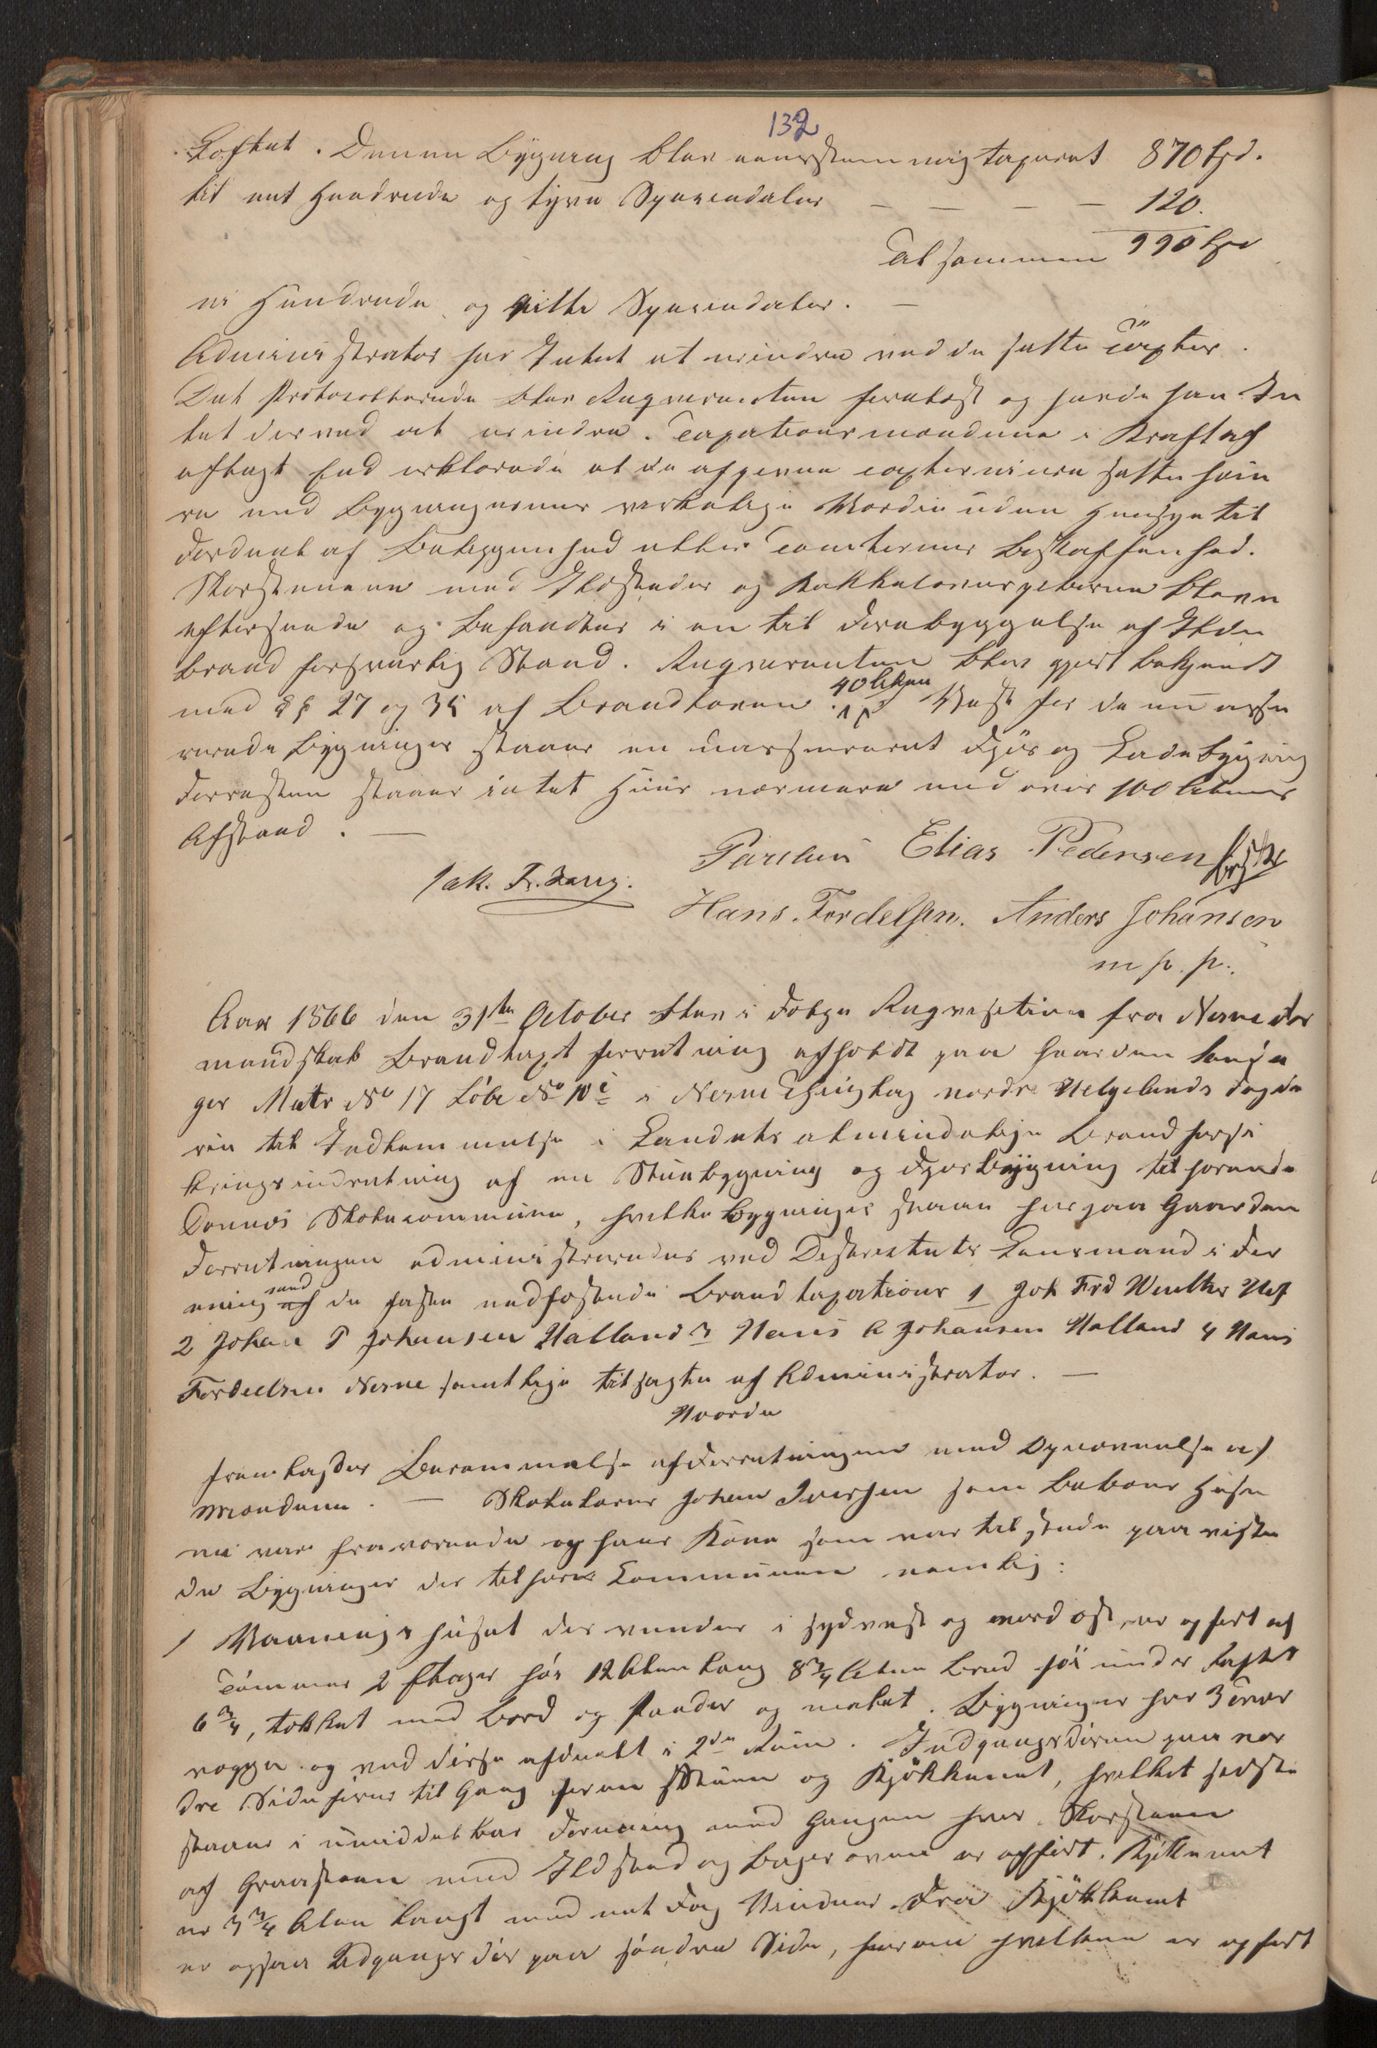 132
Loftet. Denne Bygning blev eenstemmig taxeret 870 Spd.
til eet Hundrede og tyve Speciedaler — — — — 120.
Tilsammen 990 Spd
ni Hundrede og nitti Speciedaler. —
Administrator har Intet at erindre ved de satte Taxter.
Det Protocollerede blev Reqvirenten forelæst og havde han In
tet derved at erindre. Taxationsmændene i Kraft af
aflagt Eed erklærede at de afgivne Taxter ei ere satte høie
re end Bygningernes verkelige Værdie uden Hensyn til
Fordeel af Beliggenhed eller Tomternes Beskaffenhed.
Skorstenene med Ildsteder og Kakkelovnsrørene bleve
efterseede og befandtes i en til Forebyggelse af Ilde
brand forsvarlig Stand. Reqvirenten blev gjort bekjendt
med §§ 27 og 35 af Brandloven. 40 Alen Vest for de nu asse
rerede Bygninger staaer en uassureret Fjøs og Ladebygning
Forresten staaer intet Huus nærmere end over 100 Alens
Afstand. —
Jak. Fr. Zarig. Elias Pedersen
Hans Fordelsen. Anders Johansen
m. p. p.
Aar 1866 den 31te October blev i Følge Reqvisition fra Nesne For
mandskab Brandtaxt forretning afholdt paa Gaarden
ger Matr No 17 Løbe No 10c i Nesne Thinglag nordre Helgelands Fogde
rie til Indlemmelse i Landets almindelige Brandforsi
kringsindretning af en Stuebygning og Fjøsbygning tilhørende
Dønnes Skolecommune, hvilke Bygninger staae her paa Gaarden
Forretningen administreredes ved Districtets Lensmand i For
ening med de faste eedfæstede Brandtaxations 1 Joh Frd Winther
2 Johan P Johansen Halland 3 Hans A Johansen Halland 4 Hans
Fordelsen Nesne samtlige tilsagte af Administrator. —
Hvorda
fremlagdes Berammelse af Forretningen med Opnævnelse af
Mændene. — Skolelærer Johan Iversen som beboer Huse
ne var fraværende og hans Kone som var tilstede paaviste
de Bygninger der tilhører Communen nemlig:
1 Vaaningshuset der vender i sydvest og nordost, er opført af
Tømmer 2 Etager høi 12 Alen lang 8 3/4 Alen bred høi under Taget
6 3/4, tækket med Bord og Pander og malet. Bygningen har 3 Tver
vægge og ved disse afdeelt i 2de Rum. Indgangsdøren paa nor
dre Side fører til Gang foran Stuen og Kjøkkenet, hvilket sidste
staaer i umiddelbar Forening med Gangen hvor Skorsteen
af Graasteen med Ildsted og Bagerovn er opført. Kjøkkenet
er 3 3/4 Alen langt med eet Fag Vinduer. Fra Kjøkkenet
er ogsaa Udgangsdør paa søndre Side, foran hvilken er opført